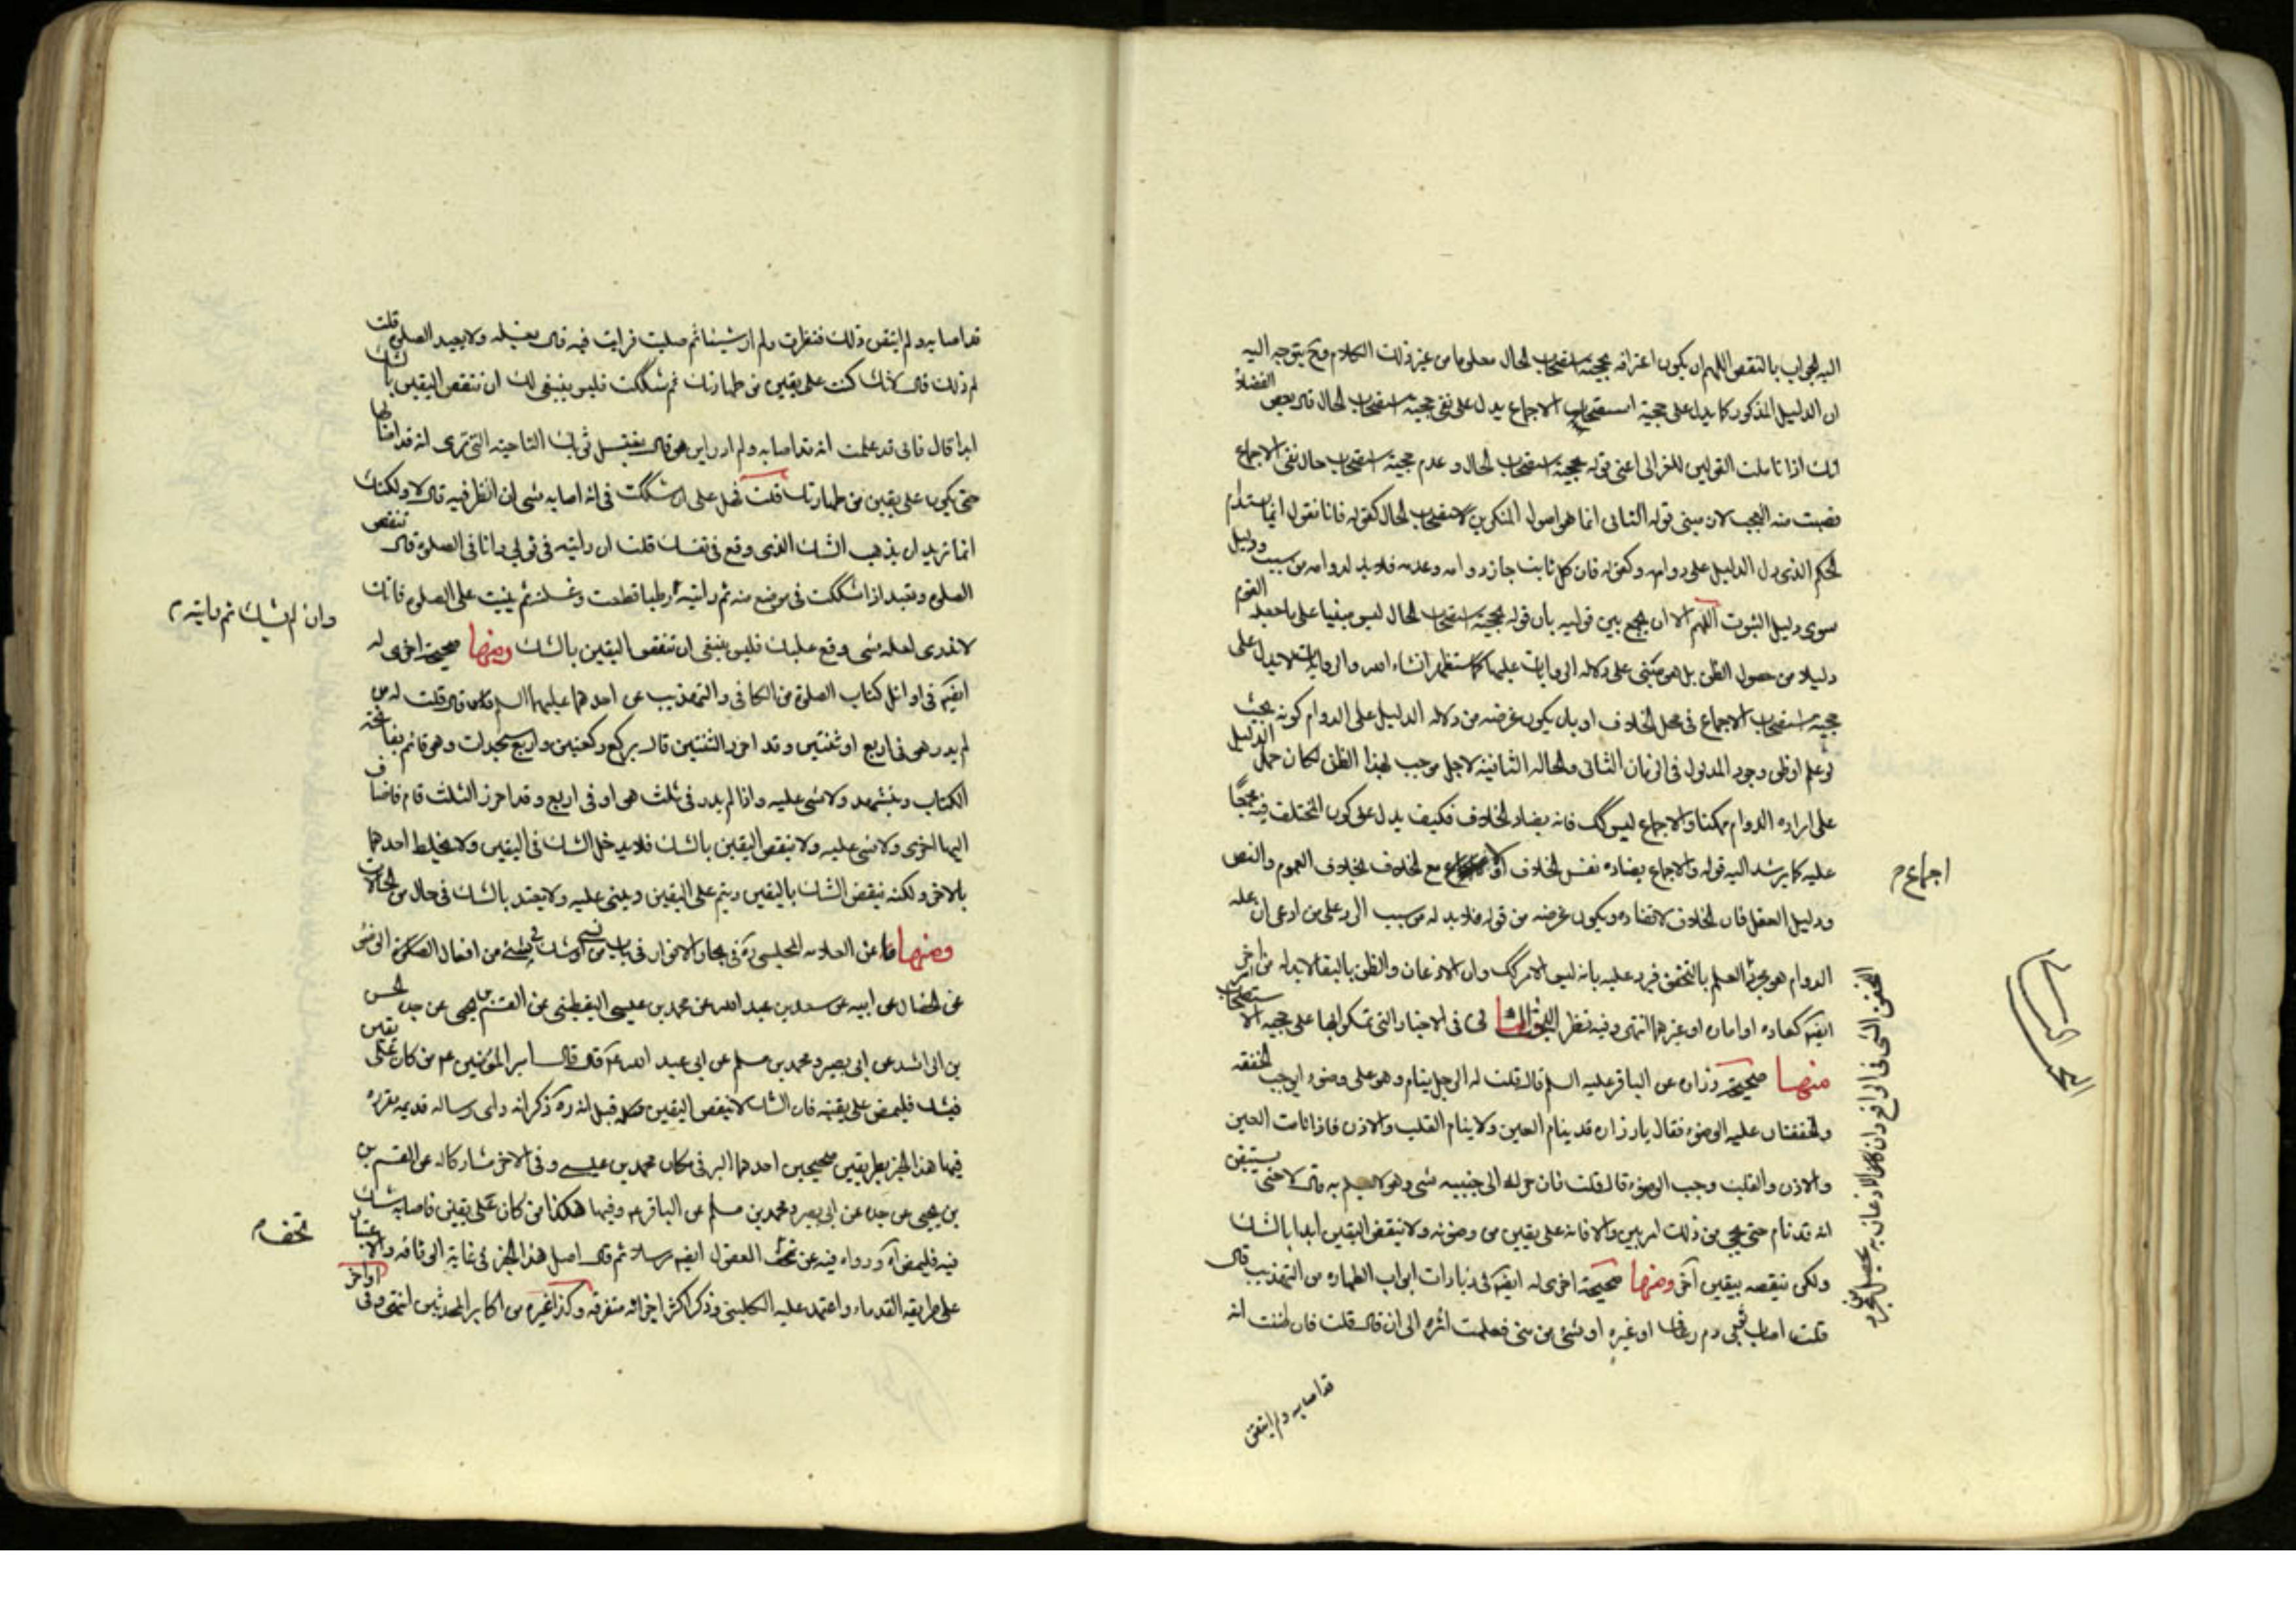 اليه الجواب بالنقض اللهم ان يكون اعترافه بحجية استصحاب الحال معلوما من غير ذلك الكلام وح يتوجه اليه
ان الدليل المذكور كما يدل على حجية استصحاب الاجماع يدل على نفي حجية استصحاب الحال قال بعض الفضلاء
انك اذا تاملت القولين للغزالي اعني قوله بحجية استصحاب الحال وعدم حجية استصحاب حال نفي الاجماع
قضيت منه العجب لان مبنى قوله الثاني انما هو اصول المنكرين لاستصحاب الحال كقوله فانا نقول انما يستدام
الحكم الذي دل الدليل على دوامه وكقوله فان كل ثابت جاز دوامه وعدمه فلابد لدوامه من سبب ودليل
سوى دليل الثبوت اللهم الا ان يجمع بين قوليه بان قوله بحجية استصحاب الحال ليس مبنيا على ما جعله القوم
دليلا من حصول الظن بل هو مبتنى على دلالة الروايات عليها كما ستظهر انشاء الله والروايات لا تدل على
حجية استصحاب الاجماع في محل الخلاف او بان يكون غرضه من دلالة الدليل على الدوام كونه بحيث
لو علم او ظن وجود المدلول في الزمان الثاني والحالة الثانية لاجل موجب لهذا الظن لكان حمل الدليل
على ارادة الدوام ممكنا والاجماع ليس كك فانه يضاد الخلاف فكيف يدل على كون المختلف فيه مجمعا
عليه كما يرشد اليه قوله والاجماع يضاده نفس الخلاف اذ لا اجماع مع الخلاف بخلاف العموم والنص
ودليل العقل فان الخلاف لا يضاده ويكون غرضه من قوله فلابد له من سبب الرد على من ادعى ان علة
الدوام هو مجرد العلم بالتحقق فيرد عليه بانه ليس الامر كك وان الاذعان والظن بالبقاء لابد له من امر اخر
ايضا كعادة او امارة او غيرهما انتهى وفيه نظر الثالث في الاخبار التي تمسكوا بها على حجية الاستصحاب
منها صحيحة زرارة عن الباقر عليه السلم قال قلت له الرجل ينام وهو على وضوء ايوجب الخفقة
والخفقتان عليه الوضوء فقال يا زرارة قد ينام العين ولا ينام القلب والاذن فاذا نامت العين
والاذن والقلب وجب الوضوء قال قلت فان حرك الى جنبيه شي وهو لا يعلم به قال لا حتى يستيقن
انه قد نام حتى يجي من ذلك امر بين والا فانه على يقين من وضوئه ولا ينقض اليقين ابدا بالشك
ولكن ينقضه بيقين آخر ومنها صحيحة اخرى له ايضا في زيادات ابواب الطهارة من التهذيب قال
قلت اصاب ثوبي دم رعاف او غيره او شي من مني فعلمت اثره الى ان قال قلت فان ظننت انه
قد اصابه ولم اتيقن
اجماع م
قد اصابه ولم اتيقن ذلك فنظرت ولم ار شيئا ثم صليت فرايت فيه قال يغسله ولا يعيد الصلوة قلت
لم ذلك قال لانك كنت على يقين من طهارتك ثم شككت فليس ينبغي لك ان تنقض اليقين بالشك
ابدا قال فاني قد علمت انه قد اصابه ولم ادر اين هو قال يغسل ثوبك الناحية التي ترى انه قد اصابها
حتى يكون على يقين من طهارتك قلت فهل على ان شككت في انه اصابه شي ان انظر فيه قال لا ولكنك
انما تريد ان يذهب الشك الذي وقع في نفسك قلت ان رايته في ثوبي وانا في الصلوة قال تنقض
الصلوة وتعيد اذا شككت في موضع منه ثم رايته رطبا قطعت وغسلته ثم بنيت على الصلوة فانك
لا تدري لعله شي وقع عليك فليس ينبغي ان تنقض اليقين بالشك ومنها صحيحة اخرى له
ايضا في اوائل كتاب الصلوة من الكافي والتهذيب عن احدهما عليهما السلم قال قلت له من
لم يدر هو في اربع او ثنتين وقد احرز الثنتين قال يركع ركعتين واربع سجدات وهو قائم بفاتحة
الكتاب ويتشهد ولا شي عليه واذا لم يدر في ثلث هو او في اربع وقد احرز الثلث قام فاضاف
اليها اخرى ولا شي عليه ولا ينقض اليقين بالشك فلا يدخل الشك في اليقين ولا يخلط احدهما
بالاخر ولكنه ينقض الشك باليقين ويتم على اليقين ويبني عليه ولا يعتد بالشك في حال من الحالات
ومنها ما عن العلامه المجلسي ره في بحار الانوار في باب من نسي او شك في شي من افعال الوضوء
عن الخصال عن ابيه عن سعد بن عبد الله عن محمد بن عيسى اليقطيني عن القسم بن يحيى عن جده الحسن
بن راشد عن ابي بصير ومحمد بن مسلم عن ابي عبد الله ع قال قال امير المؤمنين ع من كان على يقين
فشك فليمض على يقينه فان الشك لا ينقض اليقين
فيها هذا الخبر بطريقين صحيحين احدهما
بن يحيى عن جده عن ابي بصير ومحمد بن مسلم عن الباقر ع وفيها هكذا من كان على يقين فاصابه شك
فيه فليمض آه ورواه فيه عن تحف العقول ايضا مرسلا ثم قال اصل هذا الخبر في غاية الوثاقة والاعتبار
على طريقة القدماء واعتمد عليه الكليني وذكر اكثر اجزائه متفرقة وكذا غيره من اكابر المحدثين انتهى وفي اواخر
وان لم تشك ثم رايته م
تحف م